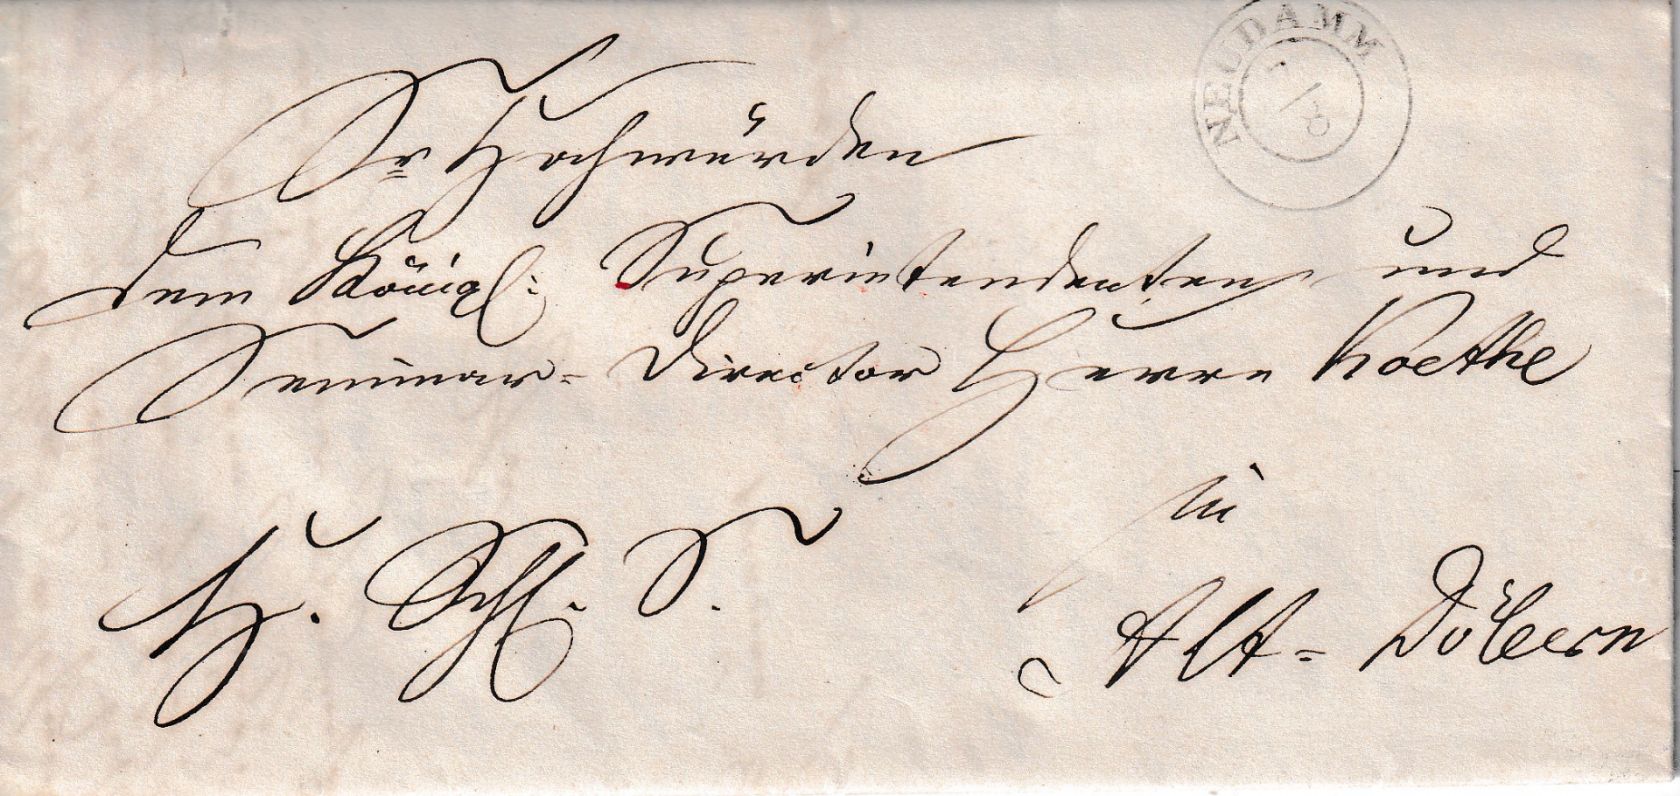 NEUDAMM
7/8
Sr Hochwürden
dem Königl: Superintendenten und
Seminar-Director Herrn Koethe
in
H. Schl. S.
Alt-Döbern